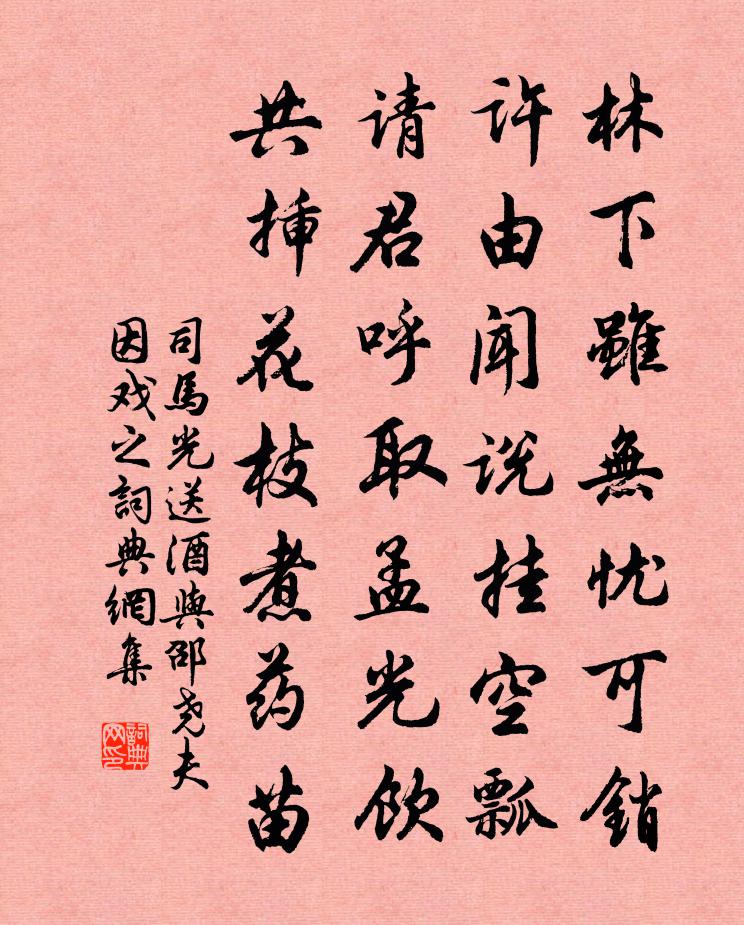 林下雖無忧可銷
许由闻说挂空瓢
请君呼取孟光饮
共揷花枝煮药苗
司馬光送酒與邵尧夫
因戏之詞典網集
詞典网印